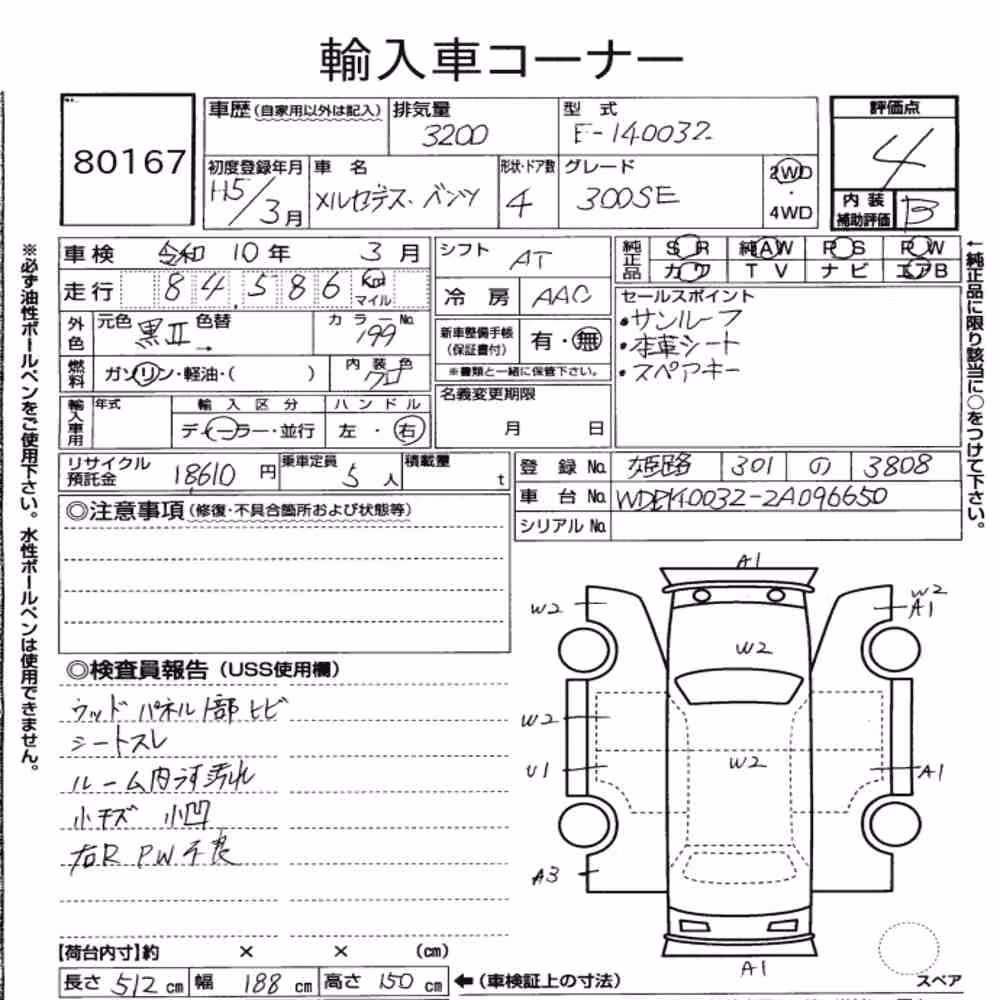 輸入車コーナー
80167
車歴(自家用以外は記入) 排気量 3200 型式 E-140032
初度登録年月 H5/3月 車名 メルセデス・ベンツ 形状・ドア数 4 グレード 300SE 2WD・4WD
評価点 4
内装補助評価 B
車検 令和 10年 3月
走行 84,586 Km マイル
外色 元色 黒Ⅱ 色替 → カラーNo. 199
燃料 ガソリン・軽油・( ) 内装色 クロ
輸入車用 年式 輸入区分 ディーラー・並行 ハンドル 左・右
シフト AT
冷房 AAC
新車整備手帳(保証書付) 有・無
※書類と一緒に保管下さい。
名義変更期限 月 日
純正品 SR 純AW PS PW
カワ TV ナビ エアB
セールスポイント
・サンルーフ
・本革シート
・スペアキー
←純正品に限り該当に○をつけて下さい。
※必ず油性ボールペンをご使用下さい。水性ボールペンは使用できません。
リサイクル預託金 18610円 乗車定員 5人 積載量 t
登録No. 姫路 301 の 3808
車台No. WDB140032-2A096650
シリアルNo.
◎注意事項(修復・不具合箇所および状態等)
◎検査員報告(USS使用欄)
ウッドパネル1部ヒビ
シートスレ
ルーム内汚れ
小キズ 小凹
右R PW不良
A1
W2
W2
A1
W2
W2
U1
W2
A1
A3
A1
スペア
【荷台内寸】約 × × (cm)
長さ 512cm 幅 188cm 高さ 150cm ←(車検証上の寸法)